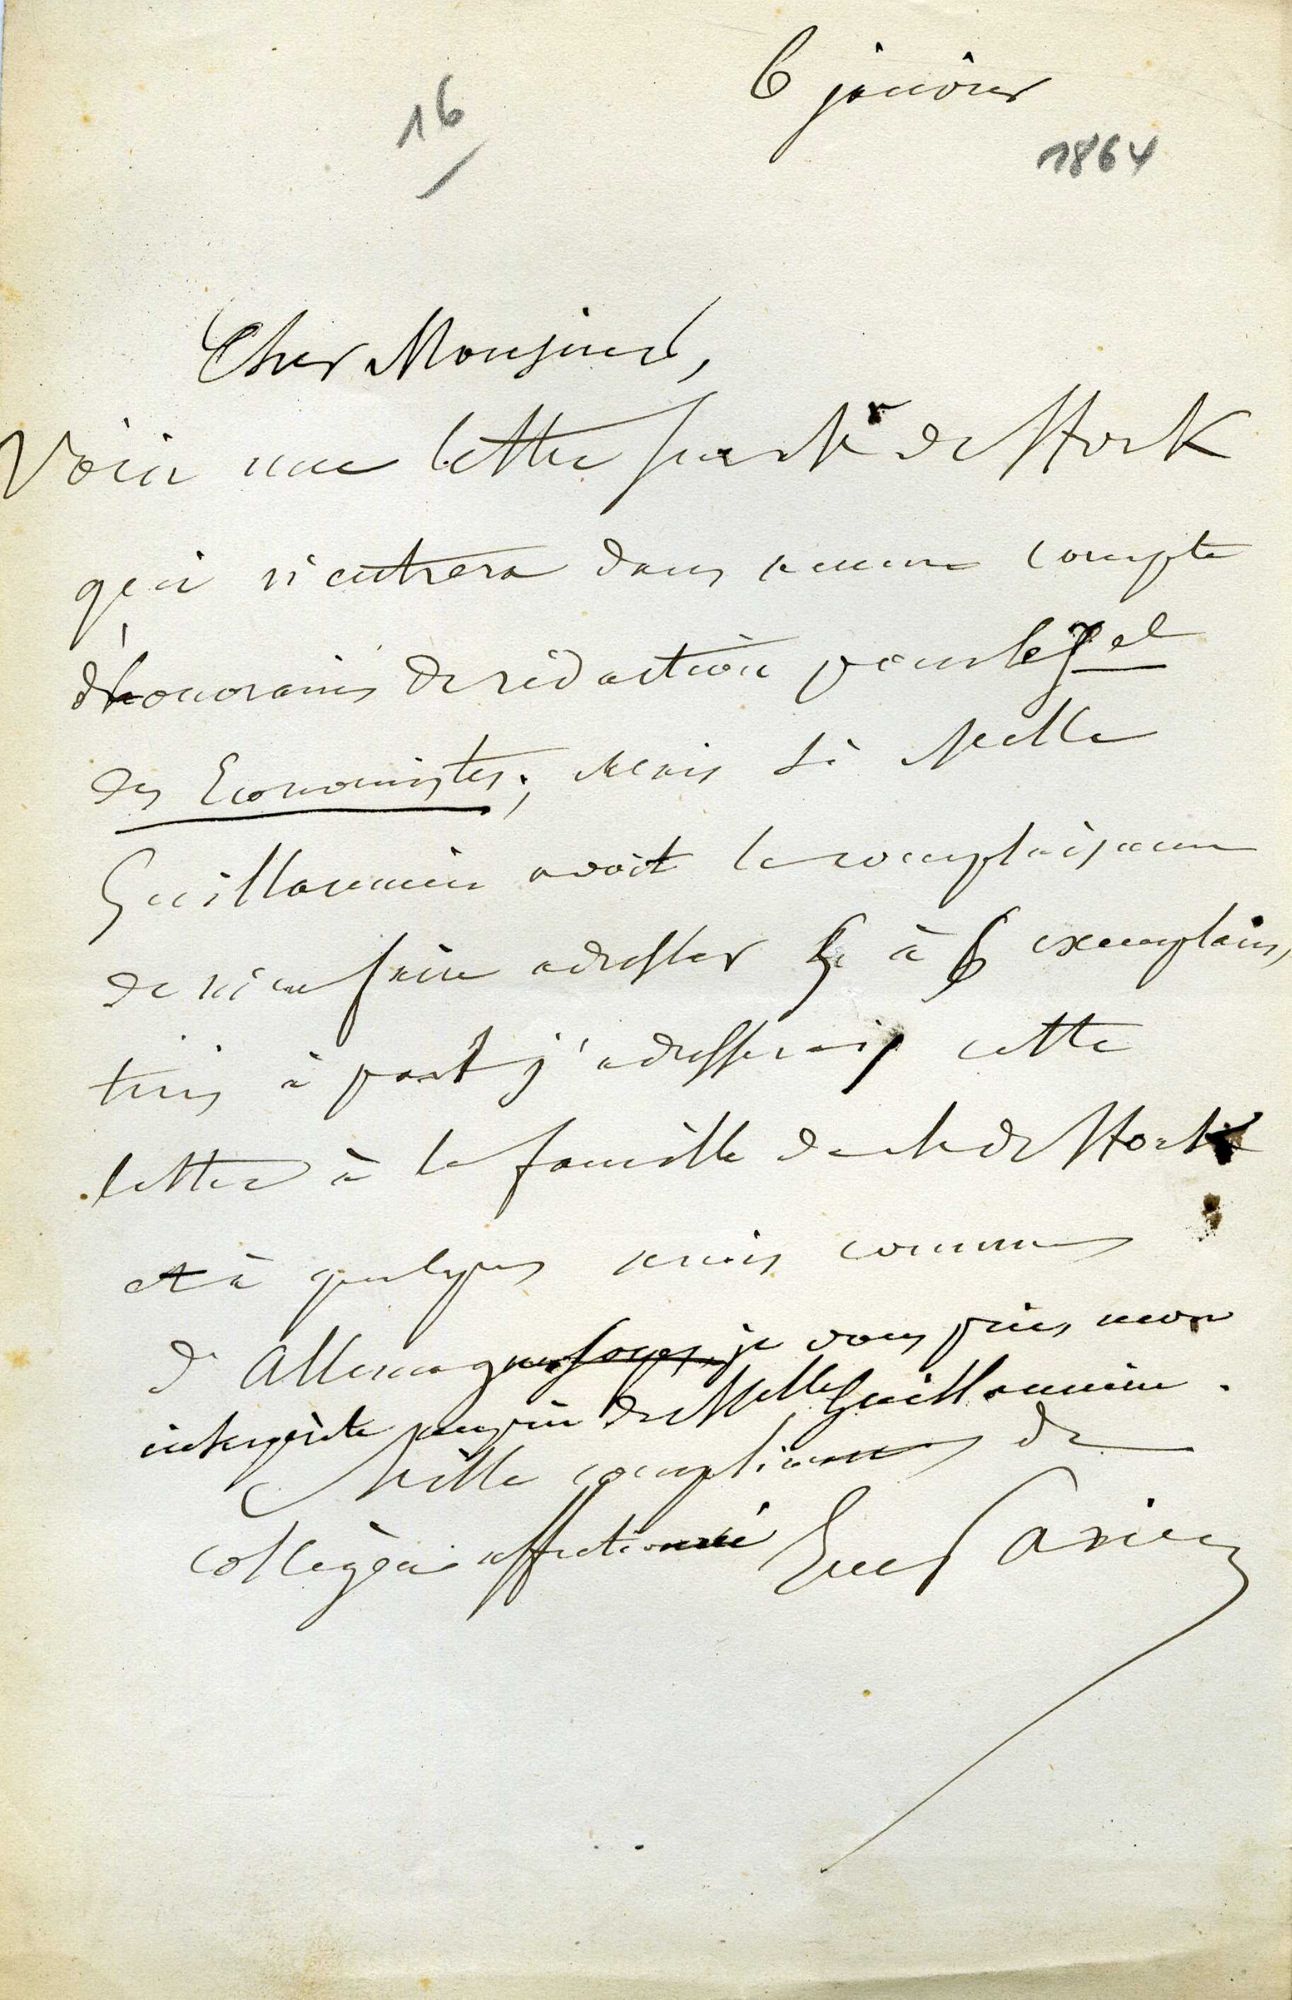 6 janvier
16
1864
Cher Monsieur,
Voici une lettre sur Mr de Hock
qui n'entrera dans aucun compte
d'honoraires de rédaction pour le Jal
des Economistes; Mais si Melle
Guillaumin avait la complaisance
de m'en faire adresser 5 à 6 exemplaires,
tirés à part j'adresserais cette
lettre à la famille de M. de Hock
et à quelques amis communs
d'Allemagne. soyez, je vous prie, mon
interprète auprès de Melle Guillaumin.
Mille compliments de
collègue affectionné